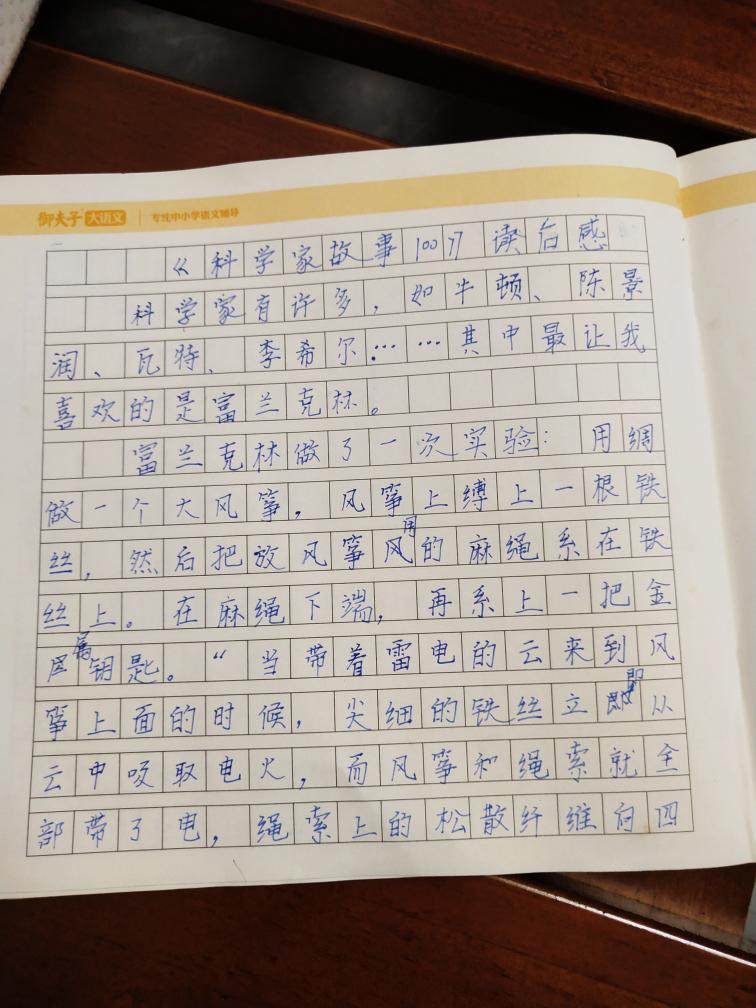 御夫子 大语文 专线中小学语文辅导
《科学家故事100》读后感
科学家有许多，如牛顿、陈景
润、瓦特、李希尔……其中最让我
喜欢的是富兰克林。
富兰克林做了一次实验：用绸
做一个大风筝，风筝上缚上一根铁
丝，然后把放风筝用的麻绳系在铁
丝上。在麻绳下端，再系上一把金
属钥匙。“当带着雷电的云来到风
筝上面的时候，尖细的铁丝立即从
云中吸取电火，而风筝和绳索就全
部带了电，绳索上的松散纤维向四